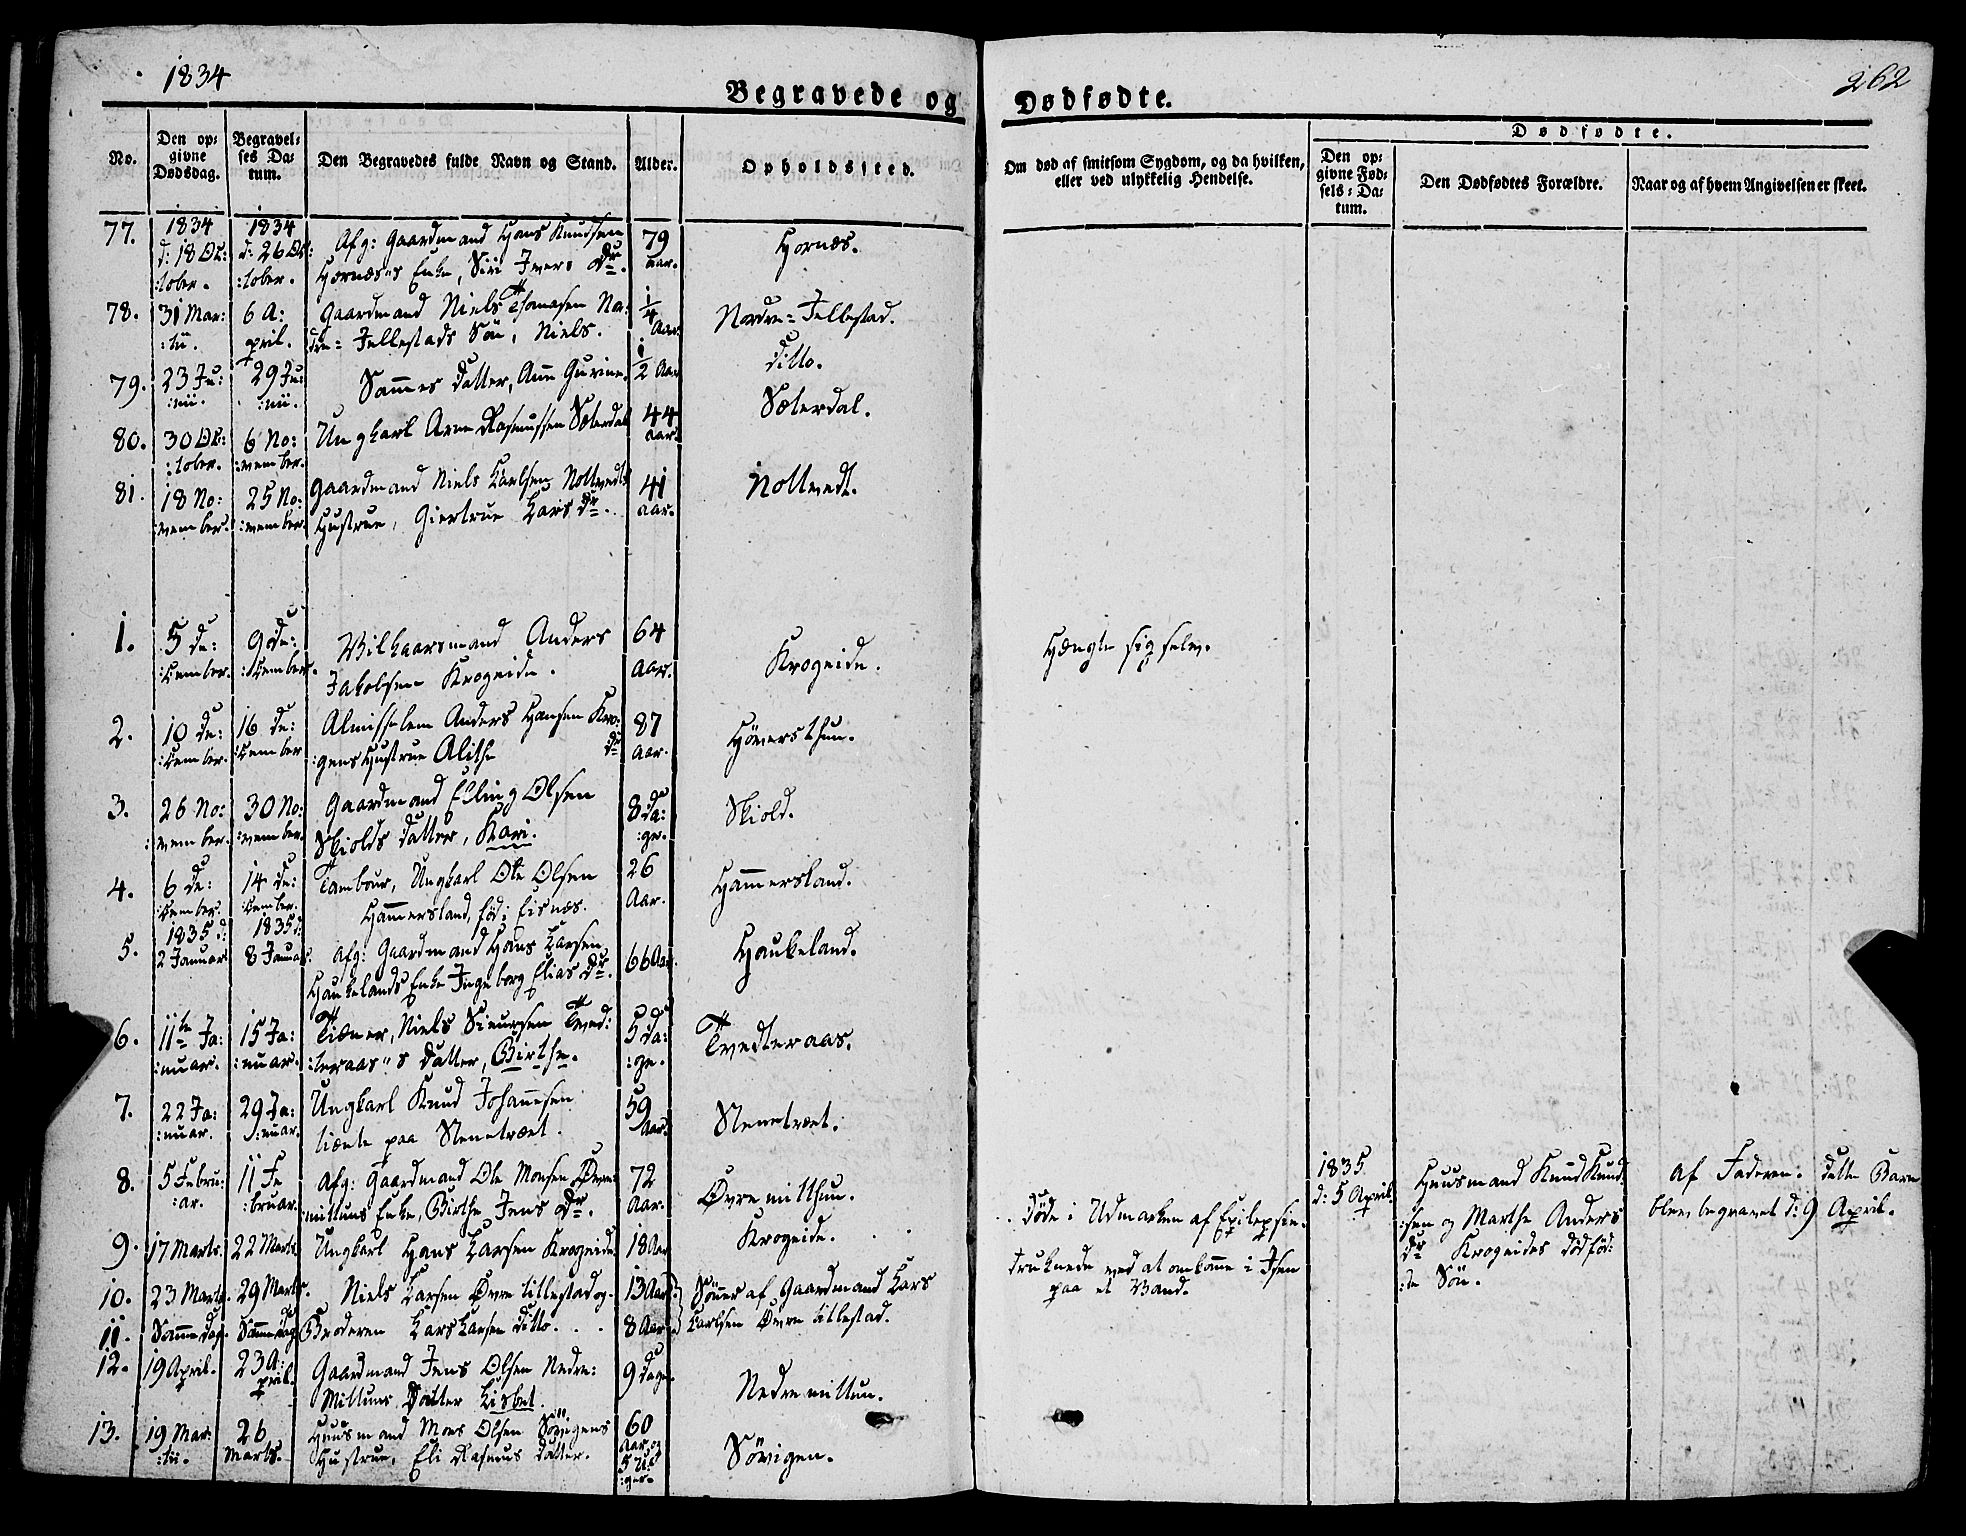 1834
Begravede og Dødfødte.
262
No.
Den op-
givne
Dødsdag.
Begravel-
ses Da-
tum.
Den Begravedes fulde Navn og Stand.
Alder.
Opholdssted.
Om død af smitsom Sygdom, og da hvilken,
eller ved ulykkelig Hendelse.
Dødfødte.
Den op-
givne Fød-
sels-Da-
tum.
Den Dødfødtes Forældre.
Naar og af hvem Angivelsen er skeet.
77. 1834 d: 18 Oc:
:tober.
1834 d: 26 Oc:
:tober.
Afg: Gaardmand Hans Knudsen
Hornæs's Enke, Siri Ivers Dr.
79
aar.
Hornæs.
78. 31 Mar:
:tii.
6 A:
pril.
Gaardmand Niels Thomasen No:
dre= Tellestads Søn, Niels.
1/4
Aar.
Nordre= Tellestad.
79. 23 Ju:
:nii.
29 Ju:
:nii.
Sammes Datter, Ane Gurine.
1/2 Aar
Ditto.
80. 30 Oc:
:tober.
6 No:
:vember.
Ungkarl Arne Rasmussen Sæterdal
44
aar.
Sæterdal.
81. 18 No:
:vember.
25 No:
:vember.
Gaardmand Niels Larsen Nottvedts
Hustrue, Giertrue Lars Dr.
41
aar.
Nottvedt.
1. 5 De:
:cember.
9 De:
:cember.
Vilkaarsmand Anders
Jakobsen Krogeide.
64
aar.
Krogeide.
Hængte sig selv.
2. 10 De:
:cember.
16 De:
:cember
Almisselem Anders Hansen Kro:
:gens Hustrue Alithe Dr
87
aar.
Høversthun.
3. 26 No:
:vember.
30 No:
:vember.
Gaardmand Elling Olsen
Skiolds Datter, Kari.
8 Da:
:ge.
Skiold.
4. 6 De:
:cember.
14 De:
:cember.
Tambour, Ungkarl Ole Olsen
Hammersland, fød i Eisnæs.
26
Aar.
Hammersland.
5. 1835 d:
2 Januar
1835 d:
8 Januar.
Afg: Gaardmand Hans Larsen
Haukelands Enke Ingeborg Elias Dr.
66 Aar.
Haukeland.
6. 11te Ja:
:nuar.
15 Ja:
:nuar.
Tiæner, Niels Siursen Tved:
:teraas's Datter, Birthe.
5 Da:
:ge.
Tvedteraas.
7. 22 Ja:
:nuar.
29 Ja:
:nuar.
Ungkarl Knud Johannesen
tiente paa Stenetræet.
59
Aar.
Stenetræet.
8. 5 Febru:
:ar.
11 Fe
:bruar.
Afg: Gaardmand Ole Monsen Øvre
:mittuns Enke, Birthe Jens Dr.
72
Aar.
Øvremitthun.
1835
d: 5 April.
Huusmand Knud Knud
:sen og Marthe Anders
Dr Krogeides dødfød:
:te Søn.
Af Faderen. Dette Barn
blev begravet d: 9 April.
9. 17 Marts.
22 Marts
Ungkarl Hans Larsen Krogeide
18 Aar
Krogeide.
Døde i Udmarken af Epilepsie.
10. 23 Marts.
29 Marts.
Niels Larsen Øvre tillestad og
13 Aar.
Sønner af Gaardmand Lars
Druknede ved at omkomme i Isen
paa et Vand.
11. Samme Dag.
Samme Dag
Broderen Lars Larsen Ditto...
8 Aar
Larsen Øvre tillestad.
12. 19 April.
23 A:
pril.
Gaardmand Jens Olsen Nedre:
Mittuns Datter Lisbet.
9 Dage.
Nedre mittun.
13. 19 Mar:
:tii.
26
Marts.
Huusmand Mons Olsen Søvigens
Hustrue, Eli Rasmus Datter.
60
aar og
5 Ug
:ger.
Søvigen.